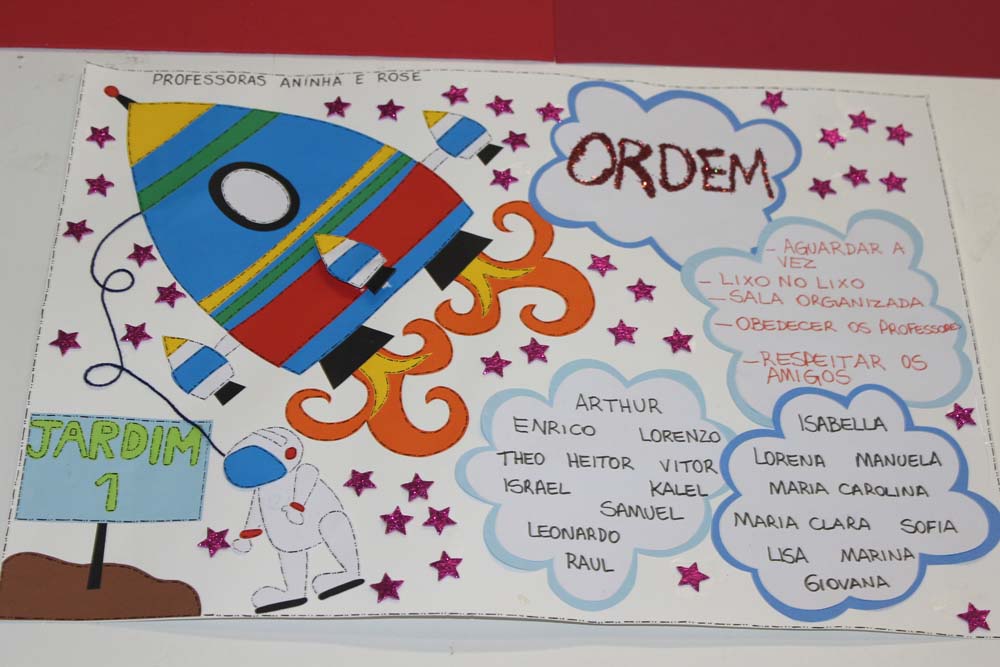 PROFESSORAS ANINHA E ROSE
ORDEM
- AGUARDAR A
VEZ
- LIXO NO LIXO
- SALA ORGANIZADA
- OBEDECER OS PROFESSORES
- RESPEITAR OS
AMIGOS
JARDIM
1
ARTHUR
ENRICO LORENZO
THEO HEITOR VITOR
ISRAEL KALEL
SAMUEL
LEONARDO
RAUL
ISABELLA
LORENA MANUELA
MARIA CAROLINA
MARIA CLARA SOFIA
LISA MARINA
GIOVANA